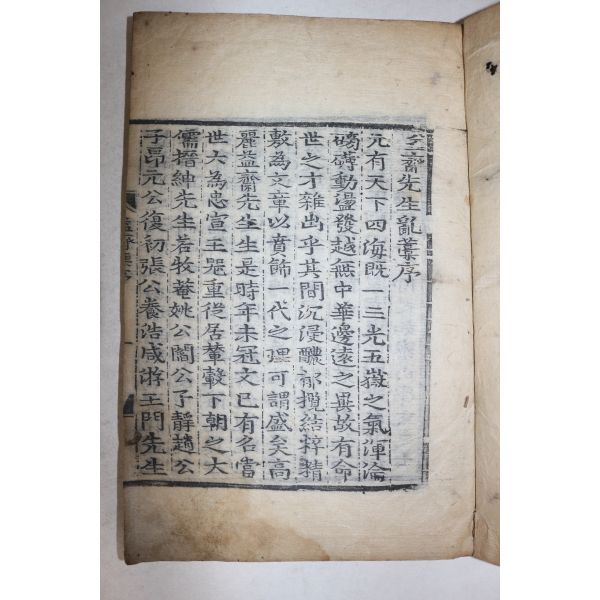 益齋先生亂藁序
元有天下四海旣一三光五嶽之氣渾淪
磅礴動盪發越無中華邊遠之異故有命
世之才雜出乎其間沉浸醲郁攬結粹精
敷爲文章以賁飾一代之理可謂盛矣高
麗益齋先生生是時年未冠文已有名當
世大爲忠宣王器重從居輦轂下朝之大
儒搢紳先生若牧菴姚公閻公子靜趙公
子昂元公復初張公養浩咸游王門先生